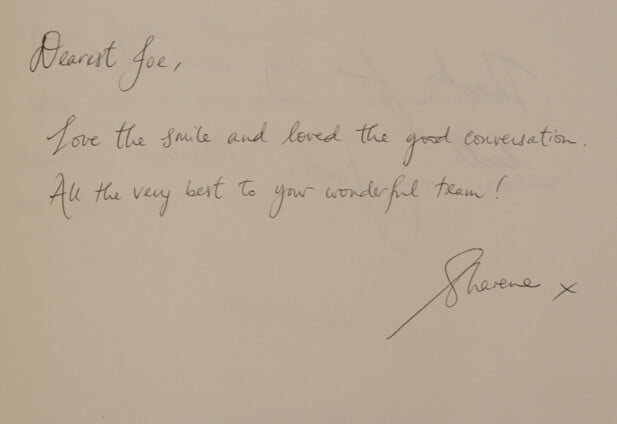 Dearest Joe,
Love the smile and loved the good conversation.
All the very best to your wonderful team!
Sharene x